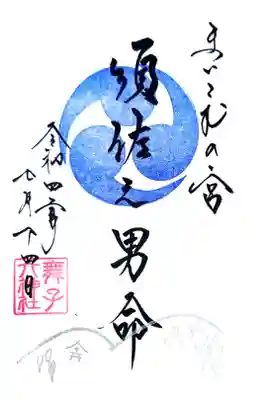 まいこむの宮
須佐之男命
令和四年
七月 四日
舞子
六神社